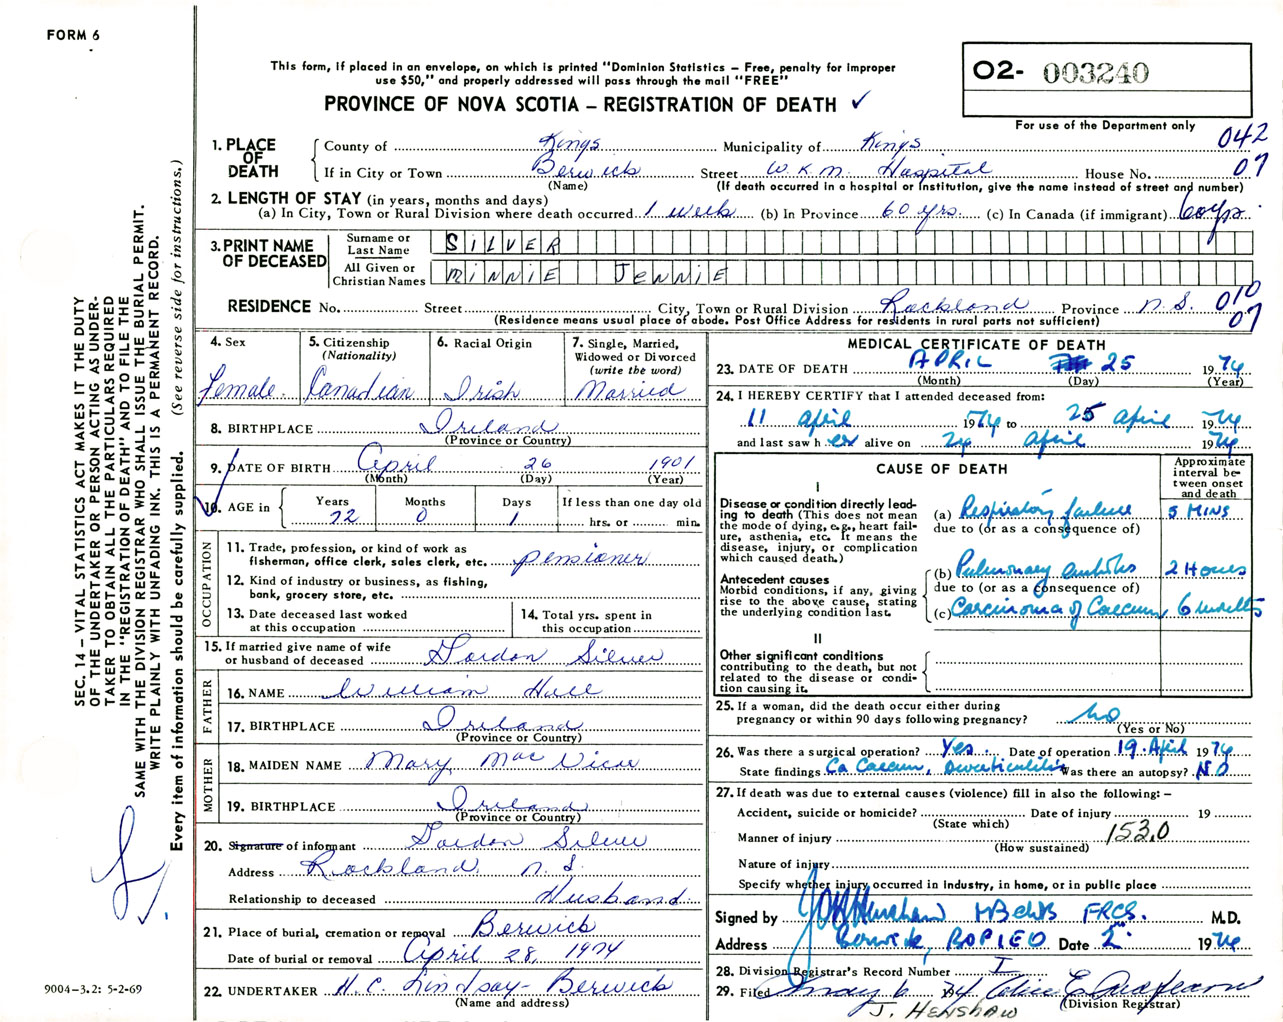 FORM 6
This form, if placed in an envelope, on which is printed "Dominion Statistics – Free, penalty for improper
use $50," and properly addressed will pass through the mail "FREE"
PROVINCE OF NOVA SCOTIA – REGISTRATION OF DEATH ✓
02- 003240
For use of the Department only
042
07
1. PLACE OF DEATH
County of Kings Municipality of Kings
If in City or Town Berwick Street W.K.M. Hospital House No.
(Name) (If death occurred in a hospital or institution, give the name instead of street and number)
2. LENGTH OF STAY (in years, months and days)
(a) In City, Town or Rural Division where death occurred 1 week (b) In Province 60 yrs. (c) In Canada (if immigrant) 60 yrs.
3. PRINT NAME OF DECEASED
Surname or Last Name SILVER
All Given or Christian Names MINNIE JENNIE
RESIDENCE No. Street City, Town or Rural Division Rockland Province N.S.
(Residence means usual place of abode. Post Office Address for residents in rural parts not sufficient)
010
07
4. Sex
Female
5. Citizenship
(Nationality)
Canadian
6. Racial Origin
Irish
7. Single, Married,
Widowed or Divorced
(write the word)
Married
8. BIRTHPLACE Ireland
(Province or Country)
9. DATE OF BIRTH April 26 1901
(Month) (Day) (Year)
10. AGE in
Years Months Days If less than one day old
72 0 1 hrs. or min.
OCCUPATION
11. Trade, profession, or kind of work as
fisherman, office clerk, sales clerk, etc. pensioner
12. Kind of industry or business, as fishing,
bank, grocery store, etc.
13. Date deceased last worked
at this occupation
14. Total yrs. spent in
this occupation
15. If married give name of wife
or husband of deceased Gordon Silver
FATHER
16. NAME William Hall
17. BIRTHPLACE Ireland
(Province or Country)
MOTHER
18. MAIDEN NAME Mary Mac Vicar
19. BIRTHPLACE Ireland
(Province or Country)
20. Signature of informant Gordon Silver
Address Rockland N.S.
Relationship to deceased Husband
21. Place of burial, cremation or removal Berwick
Date of burial or removal April 28, 1974
22. UNDERTAKER H.C. Lindsay - Berwick
(Name and address)
MEDICAL CERTIFICATE OF DEATH
23. DATE OF DEATH APRIL 25 1974
(Month) (Day) (Year)
24. I HEREBY CERTIFY that I attended deceased from:
11 April 1974 to 25 April 1974
and last saw her alive on 24 April 1974
CAUSE OF DEATH
Approximate
interval be-
tween onset
and death
I
Disease or condition directly lead-
ing to death (This does not mean
the mode of dying, e.g., heart fail-
ure, asthenia, etc. It means the
disease, injury, or complication
which caused death.)
(a) Respiratory failure 5 MINS
due to (or as a consequence of)
Antecedent causes
Morbid conditions, if any, giving
rise to the above cause, stating
the underlying condition last.
(b) Pulmonary embolus 2 Hours
due to (or as a consequence of)
(c) Carcinoma of Caecum 6 months
II
Other significant conditions
contributing to the death, but not
related to the disease or condi-
tion causing it.
25. If a woman, did the death occur either during
pregnancy or within 90 days following pregnancy? No
(Yes or No)
26. Was there a surgical operation? Yes. Date of operation 19 April 1974
State findings Ca Caecum, Diverticulitis Was there an autopsy? NO
27. If death was due to external causes (violence) fill in also the following: –
Accident, suicide or homicide? Date of injury 19
(State which)
Manner of injury 153.0
(How sustained)
Nature of injury
Specify whether injury occurred in industry, in home, or in public place
Signed by Henshaw MBChB FRCS. M.D.
Address Berwick, BOPIEO Date 2 1974
28. Division Registrar's Record Number I
29. Filed May 6 1974
(Division Registrar)
J. HENSHAW
SEC. 14 – VITAL STATISTICS ACT MAKES IT THE DUTY
OF THE UNDERTAKER OR PERSON ACTING AS UNDER-
TAKER TO OBTAIN ALL THE PARTICULARS REQUIRED
IN THE "REGISTRATION OF DEATH" AND TO FILE THE
SAME WITH THE DIVISION REGISTRAR WHO SHALL ISSUE THE BURIAL PERMIT.
WRITE PLAINLY WITH UNFADING INK. THIS IS A PERMANENT RECORD.
Every item of information should be carefully supplied. (See reverse side for instructions.)
9004-3.2: 5-2-69